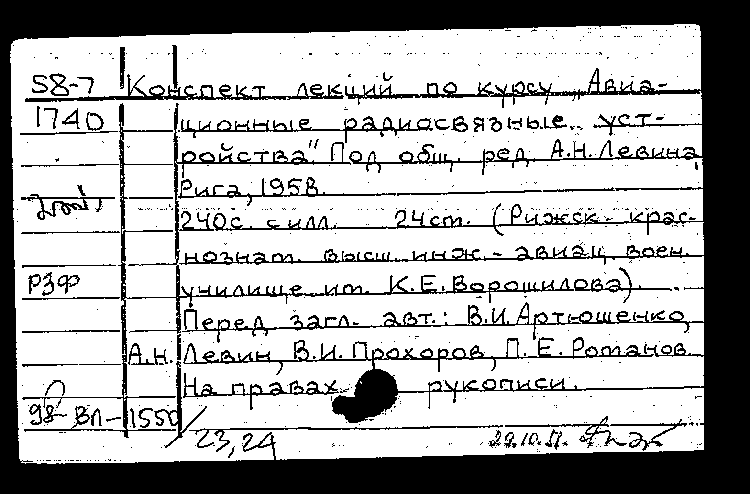 58-7 Конспект лекций по курсу „Авиа-
1740 ционные радиосвязные уст-
ройства". Под общ. ред. А.Н. Левина,
Рига, 1958.
240с. с илл. 24 cm. (Рижск. крас-
нознам. высш. инж.-авиац. воен.
РЗФ училище им. К.Е. Ворошилова).
Перед загл. авт.: В.И. Артюшенко,
А.Н. Левин, В.И. Прохоров, П.Е. Романов.
На правах рукописи.
98-ВЛ-1550
23,24